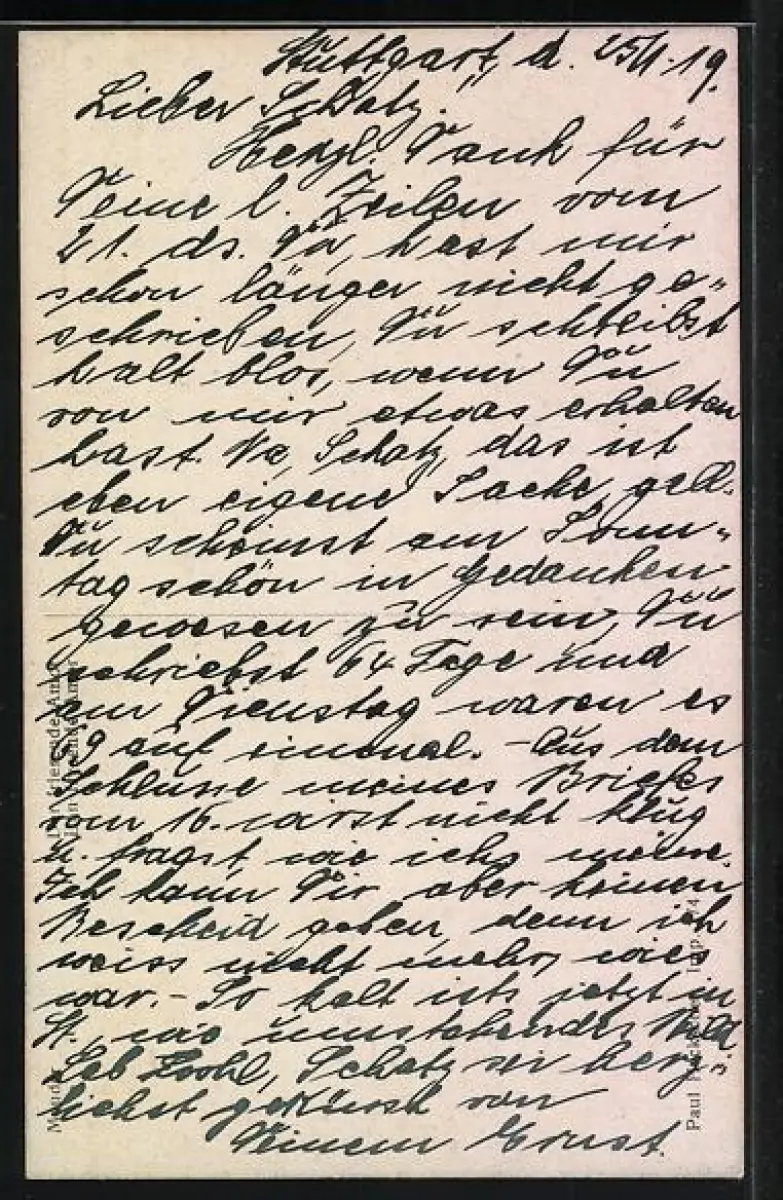 Stuttgart, d. 25/1.19.
Lieber Schatz.
Herzl. Dank für
Deine l. Zeilen vom
21. ds. Du, hast mir
schon länger nicht ge-
schrieben, Du schreibst
halt blos, wenn Du
von mir etwas erhalten
hast. Na, Schatz, das ist
eben eigene Sache, gell.
Du scheinst am Sonn-
tag schön in Gedanken
gewesen zu sein, Du
schriebst 64 Tage und
am Dienstag waren es
59 auf einmal. - Aus dem
Schlusse meines Briefes
vom 16. wirst nicht klug
u. fragst wie ichs meine.
Ich kann Dir aber keinen
Bescheid geben, denn ich
weiss nicht mehr, wies
war. - So kalt ists jetzt in
St., wie umstehendes Bild
Leb wohl, Schatz sei herz-
lichst geküsst von
Deinem Ernst.
Paul